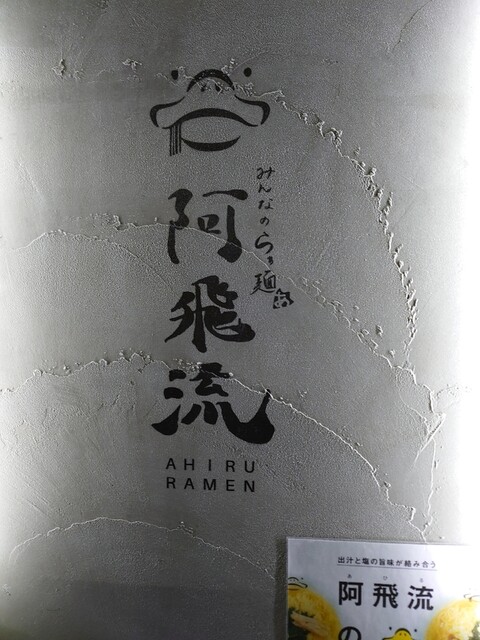 みんなのらぁ麺
あ
阿飛流
AHIRU
RAMEN
出汁と塩の旨味が絡み合う
阿飛流
の